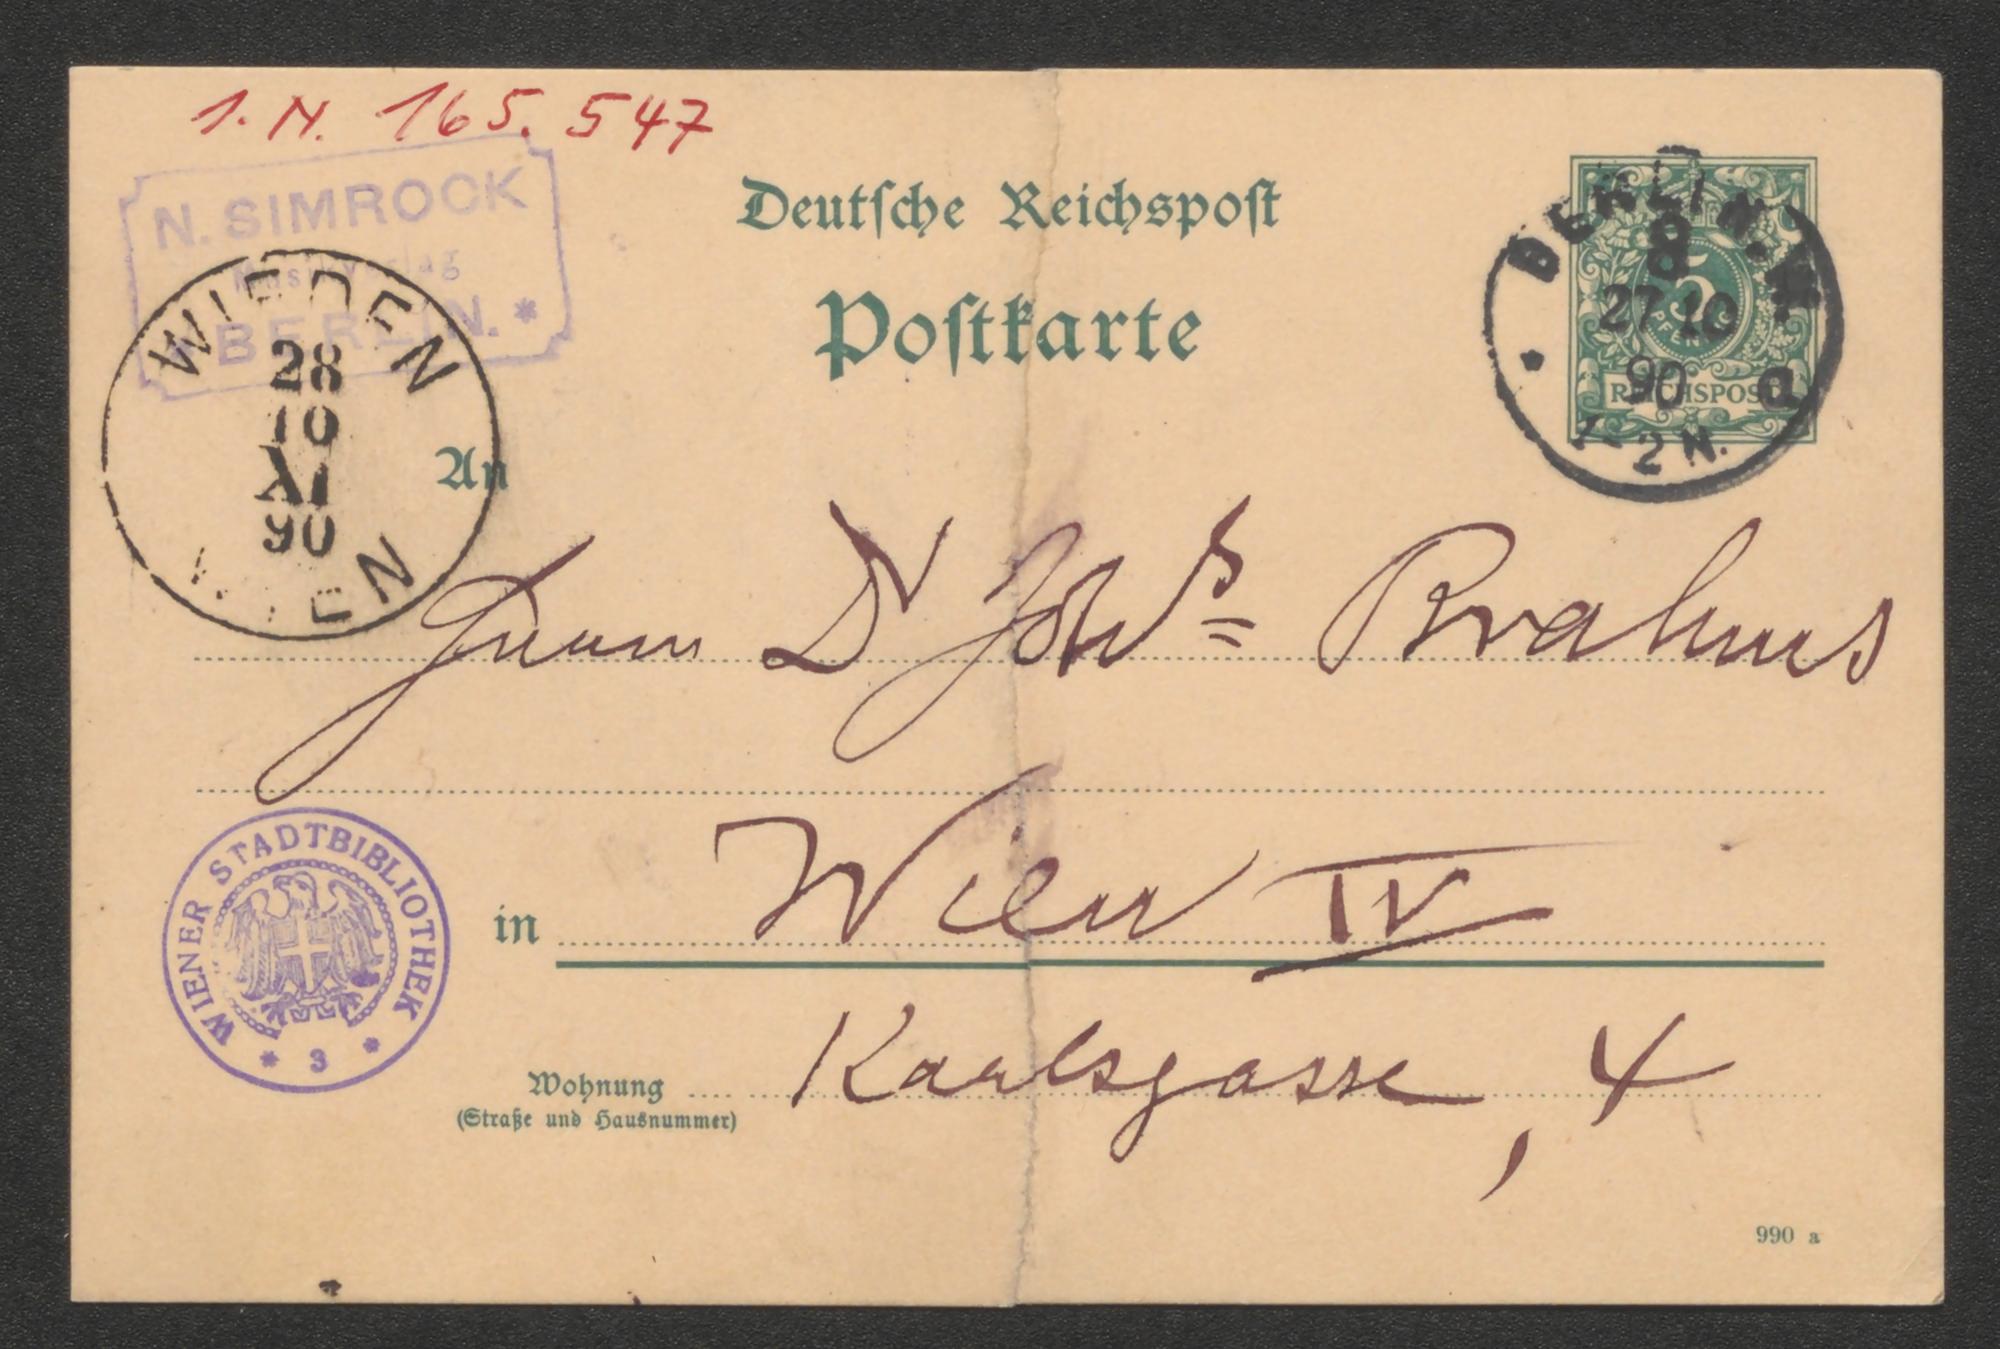 I. N. 165.547
N. SIMROCK
Musikverlag
BERLIN.
Deutsche Reichspost
Postkarte
BERLIN. W
8
27 10
90
a
1-2 N.
5
PFENNIG
REICHSPOST
WIEDEN
28
10
XI
90
WIEN
An
Herrn Dr Johs Brahms
in Wien IV
Wohnung Karlsgasse, 4
(Straße und Hausnummer)
WIENER STADTBIBLIOTHEK
* 3 *
990 a